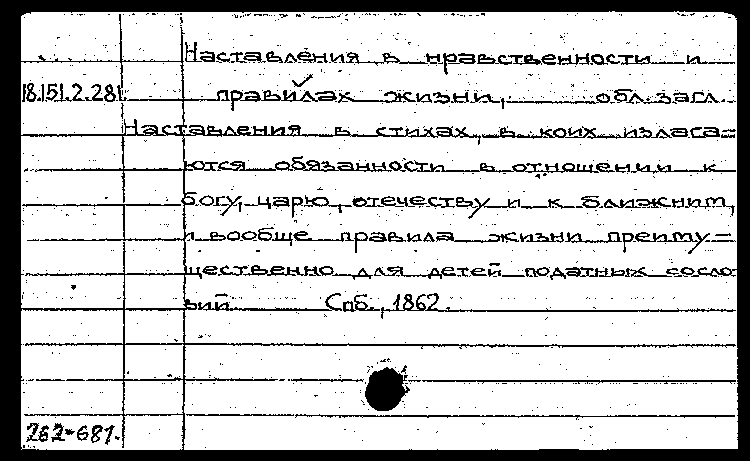 Наставления в нравственности и
18.151.2.281 правилах жизни, обл. загл.
Наставления в стихах, в коих излага=
ются обязанности в отношении к
богу, царю, отечеству и к ближним,
и вообще правила жизни преиму=
щественно для детей податных сосло
вий Спб., 1862.
262-681.